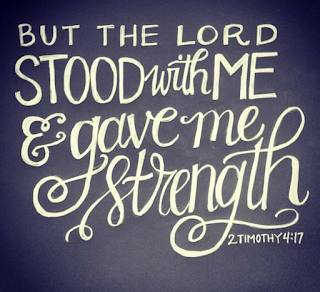 BUT THE LORD
STOOD with ME
& gave me
strength
2 TIMOTHY 4:17